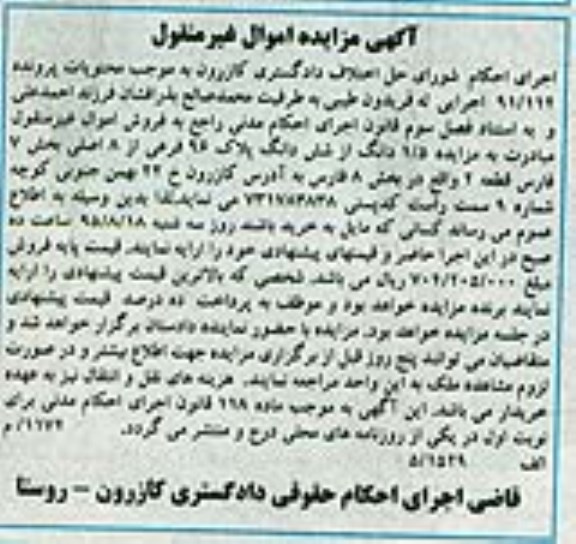 آگهی مزایده اموال غیرمنقول
اجرای احکام شورای حل اختلاف دادگستری کازرون به موجب محتویات پرونده
۹۱/۱۱۲ اجرایی له فریدون طیبی به طرفیت محمدصالح بذرافشان فرزند احمدعلی
و به استناد فصل سوم قانون اجرای احکام مدنی راجع به فروش اموال غیرمنقول
مبادرت به مزایده ۱/۵ دانگ از شش دانگ پلاک ۹۶ فرعی از ۸ اصلی بخش ۷
فارس قطعه ۲ واقع در بخش ۸ فارس به آدرس کازرون خ ۲۲ بهمن جنوبی کوچه
شماره ۹ سمت راست کدپستی ۷۳۱۷۸۳۸۳۸ می نماید.لذا بدین وسیله به اطلاع
عموم می رساند کسانی که مایل به خرید باشند روز سه شنبه ۹۵/۸/۱۸ ساعت ده
صبح در این اجرا حاضر و قیمتهای پیشنهادی خود را ارایه نمایند. قیمت پایه فروش
مبلغ ۷۰۲/۲۰۵/۰۰۰ ریال می باشد. شخصی که بالاترین قیمت پیشنهادی را ارایه
نمایند برنده مزایده خواهد بود و موظف به پرداخت ده درصد قیمت پیشنهادی
در جلسه مزایده خواهد بود. مزایده با حضور نماینده دادستان برگزار خواهد شد و
متقاضیان می توانند پنج روز قبل از برگزاری مزایده جهت اطلاع بیشتر و در صورت
لزوم مشاهده ملک به این واحد مراجعه نمایند. هزینه های نقل و انتقال نیز به عهده
خریدار می باشد. این آگهی به موجب ماده ۱۱۸ قانون اجرای احکام مدنی برای
نوبت اول در یکی از روزنامه های محلی درج و منتشر می گردد. ۱۱۷۲/ م
الف ۵/۱۵۲۹
قاضی اجرای احکام حقوقی دادگستری کازرون - روستا